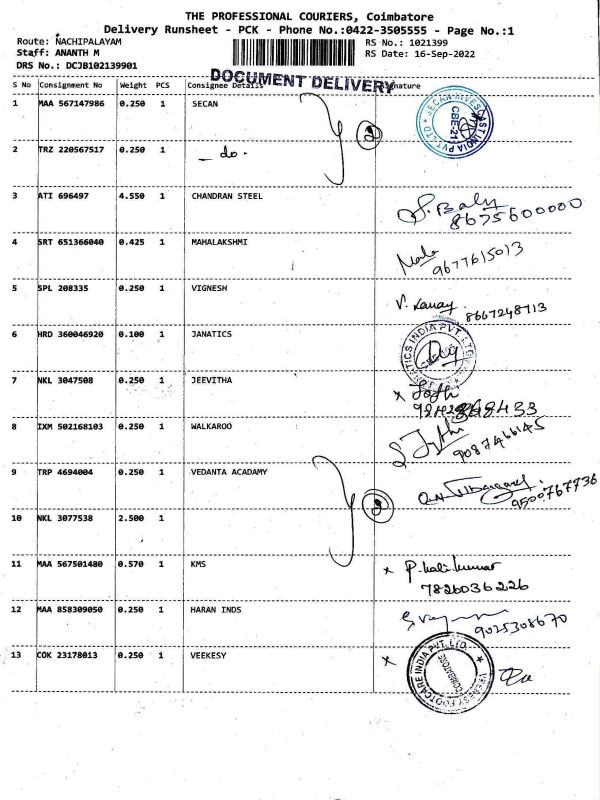 THE PROFESSIONAL COURIERS, Coimbatore
Delivery Runsheet - PCK - Phone No.:0422-3505555 - Page No.:1
Route: NACHIPALAYAM
RS No.: 1021399
Staff: ANANTH M
RS Date: 16-Sep-2022
DRS No.: DCJB102139901
DOCUMENT DELIVERY
S No Consignment No Weight PCS Consignee Details Signature
1 MAA 567147986 0.250 1 SECAN
2 TRZ 220567517 0.250 1 — do.
2
3 ATI 696497 4.550 1 CHANDRAN STEEL
S. Baly
8675600000
4 SRT 651366040 0.425 1 MAHALAKSHMI
Mala
9677615013
5 SPL 208335 0.250 1 VIGNESH
8667248713
6 HRD 360046920 0.100 1 JANATICS
JANATICS INDIA PVT. LTD
7 NKL 3047508 0.250 1 JEEVITHA
8 IXM 502168103 0.250 1 WALKAROO
9087466145
9 TRP 4694004 0.250 1 VEDANTA ACADAMY
9500767736
2
10 NKL 3077538 2.500 1
11 MAA 567501480 0.570 1 KMS
x P. kalikumar
7826036226
12 MAA 858309050 0.250 1 HARAN INDS
9025308670
13 COK 23178013 0.250 1 VEEKESY
x
VEEKESY FOOTCARE INDIA PVT. LTD.
COIMBATORE